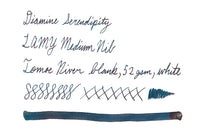 Diamine Serendipity
LAMY Medium Nib
Tomoe River blank, 52 gsm, white